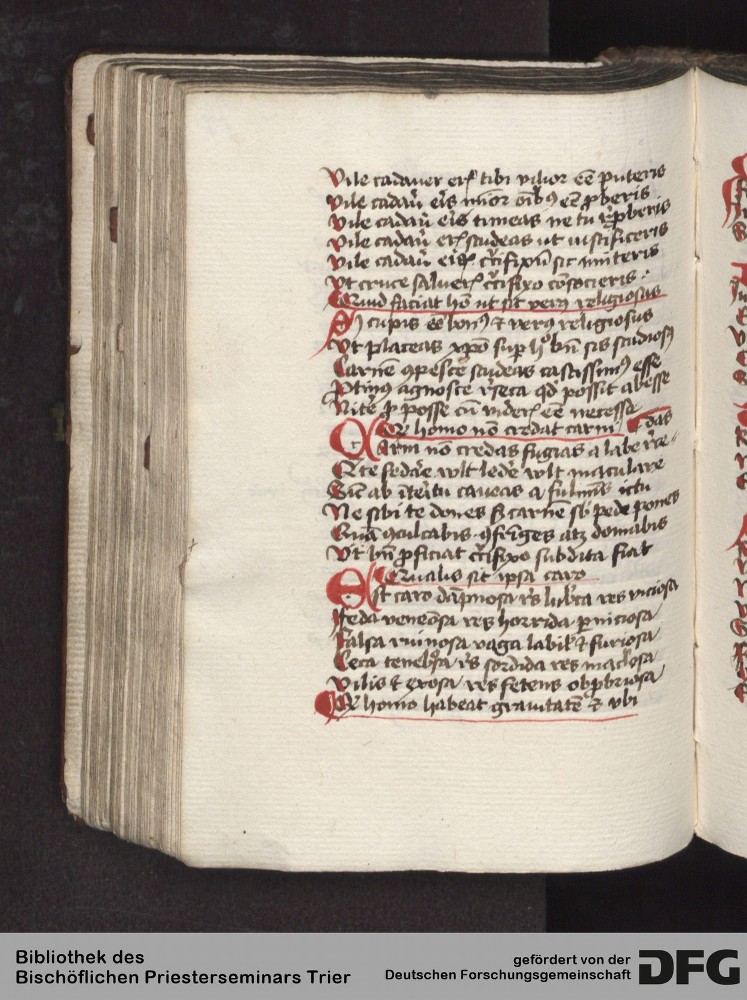 Vile cadaver eris tibi vilior esse puteris
Vile cadaũ eris minor oĩbus esse ꝓberis
Vile cadaũ eris timeas ne tu ꝓberis
Vile cadaũ eris studeas ut iustificeris
Vile cadaũ eris crucifixũ sic
Vt cruce salueris crucifixo cõsocieris
Quid faciat hõ ut sit verus religiosus
Si cupis esse bonus & verus religiosus
Vt placeas xp̃o sup̱ hoc bñ sis studiosus
Carnẽ ꝯpescẽ studeas castissimus esse
agnosce reseca qd possit abesse
ꝓ posse cũ esse necesse
Qd homo nõ credat carni
Carni nõ credas fugias a labe
Que te fedare wlt ledere wlt maculare
Sicut ab interitu caveas a fulminis ictu
Ne sibi te dones sed carnẽ sub pede pones
Quã ꝯculcabis ꝯfringes atqz domabis
Vt bñ ꝓficiat crucifixo subdita fiat
Qualis sit ipsa caro
Est caro dãpnosa res lubrica res viciosa
Feda venenosa res horrida perniciosa
Falsa ruinosa vaga labilis & furiosa
Ceca tenebrosa res sordida res maclosa
Vilis & exosa res fetens obꝓbriosa
Qd homo habeat gravitatẽ & ubi
Bibliothek des
Bischöflichen Priesterseminars Trier
gefördert von der
Deutschen Forschungsgemeinschaft DFG